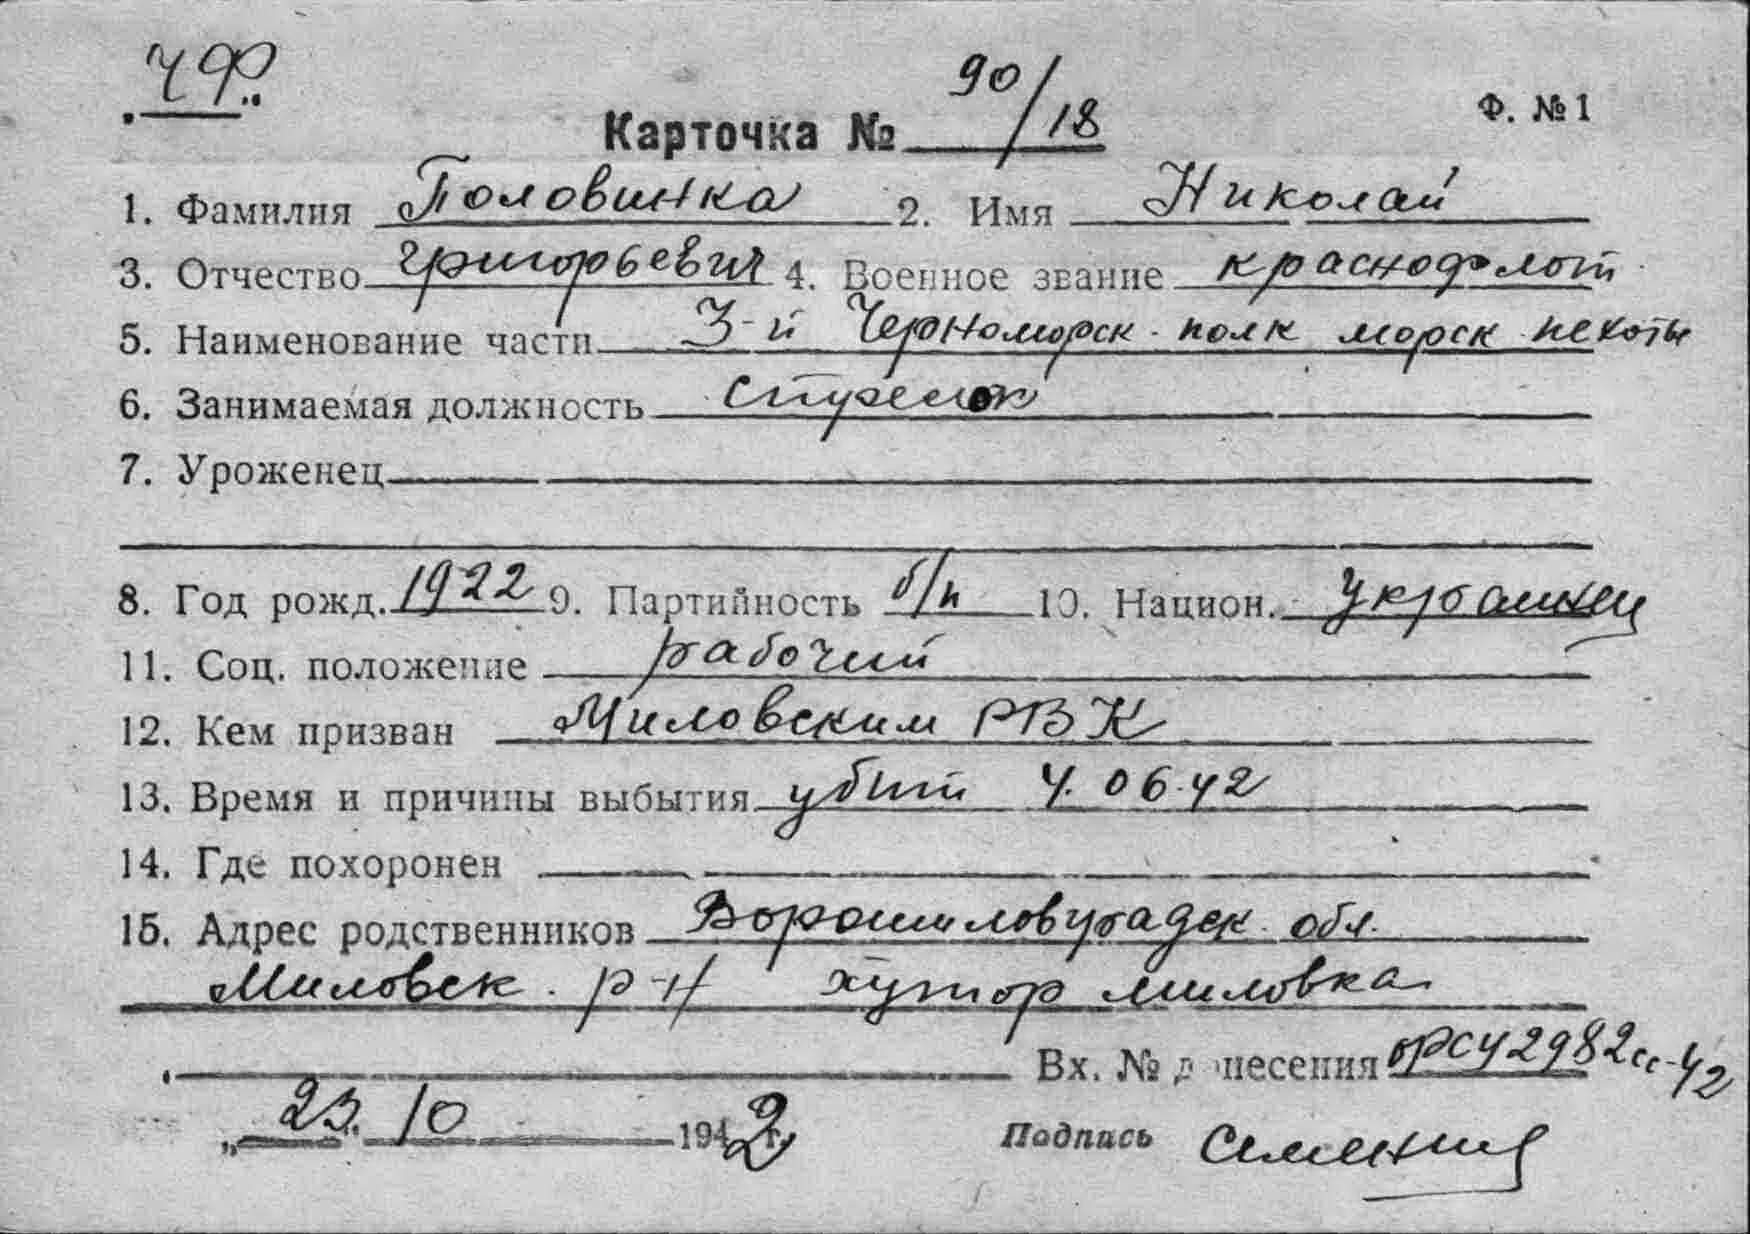 ЧФ.
Карточка № 90/18
Ф. № 1
1. Фамилия Половинка 2. Имя Николай
3. Отчество Григорьевич 4. Военное звание краснофлот
5. Наименование части 3-й Черноморск. полк морск. пехоты
6. Занимаемая должность стрелок
7. Уроженец
8. Год рожд. 1922 9. Партийность б/п 10. Национ. Украинец
11. Соц. положение рабочий
12. Кем призван Миловским РВК
13. Время и причины выбытия убит 4.06.42
14. Где похоронен
15. Адрес родственников Ворошиловградск. обл.
Миловск. р-н хутор Миловка
Вх. № донесения орсу 2982сс-42
„23. 10 1942 г.
Подпись